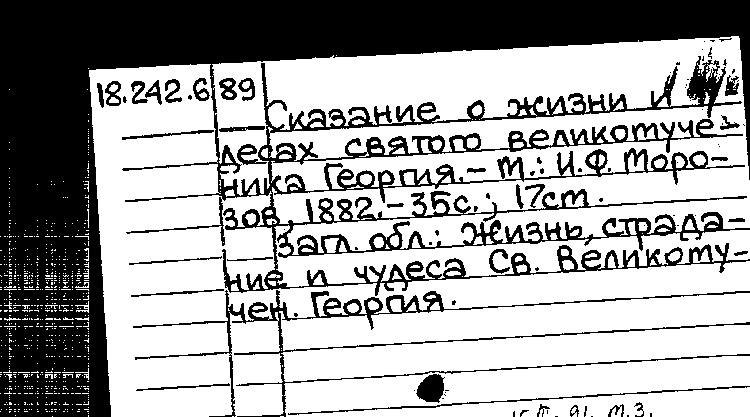 18.242.6 89
Сказание о жизни и чу-
десах святого великомуче-
ника Георгия.- М.: И.Ф. Моро-
зов, 1882.- 35с.; 17см.
Загл. обл.: Жизнь, страда-
ние и чудеса Св. Великому-
чен. Георгия.